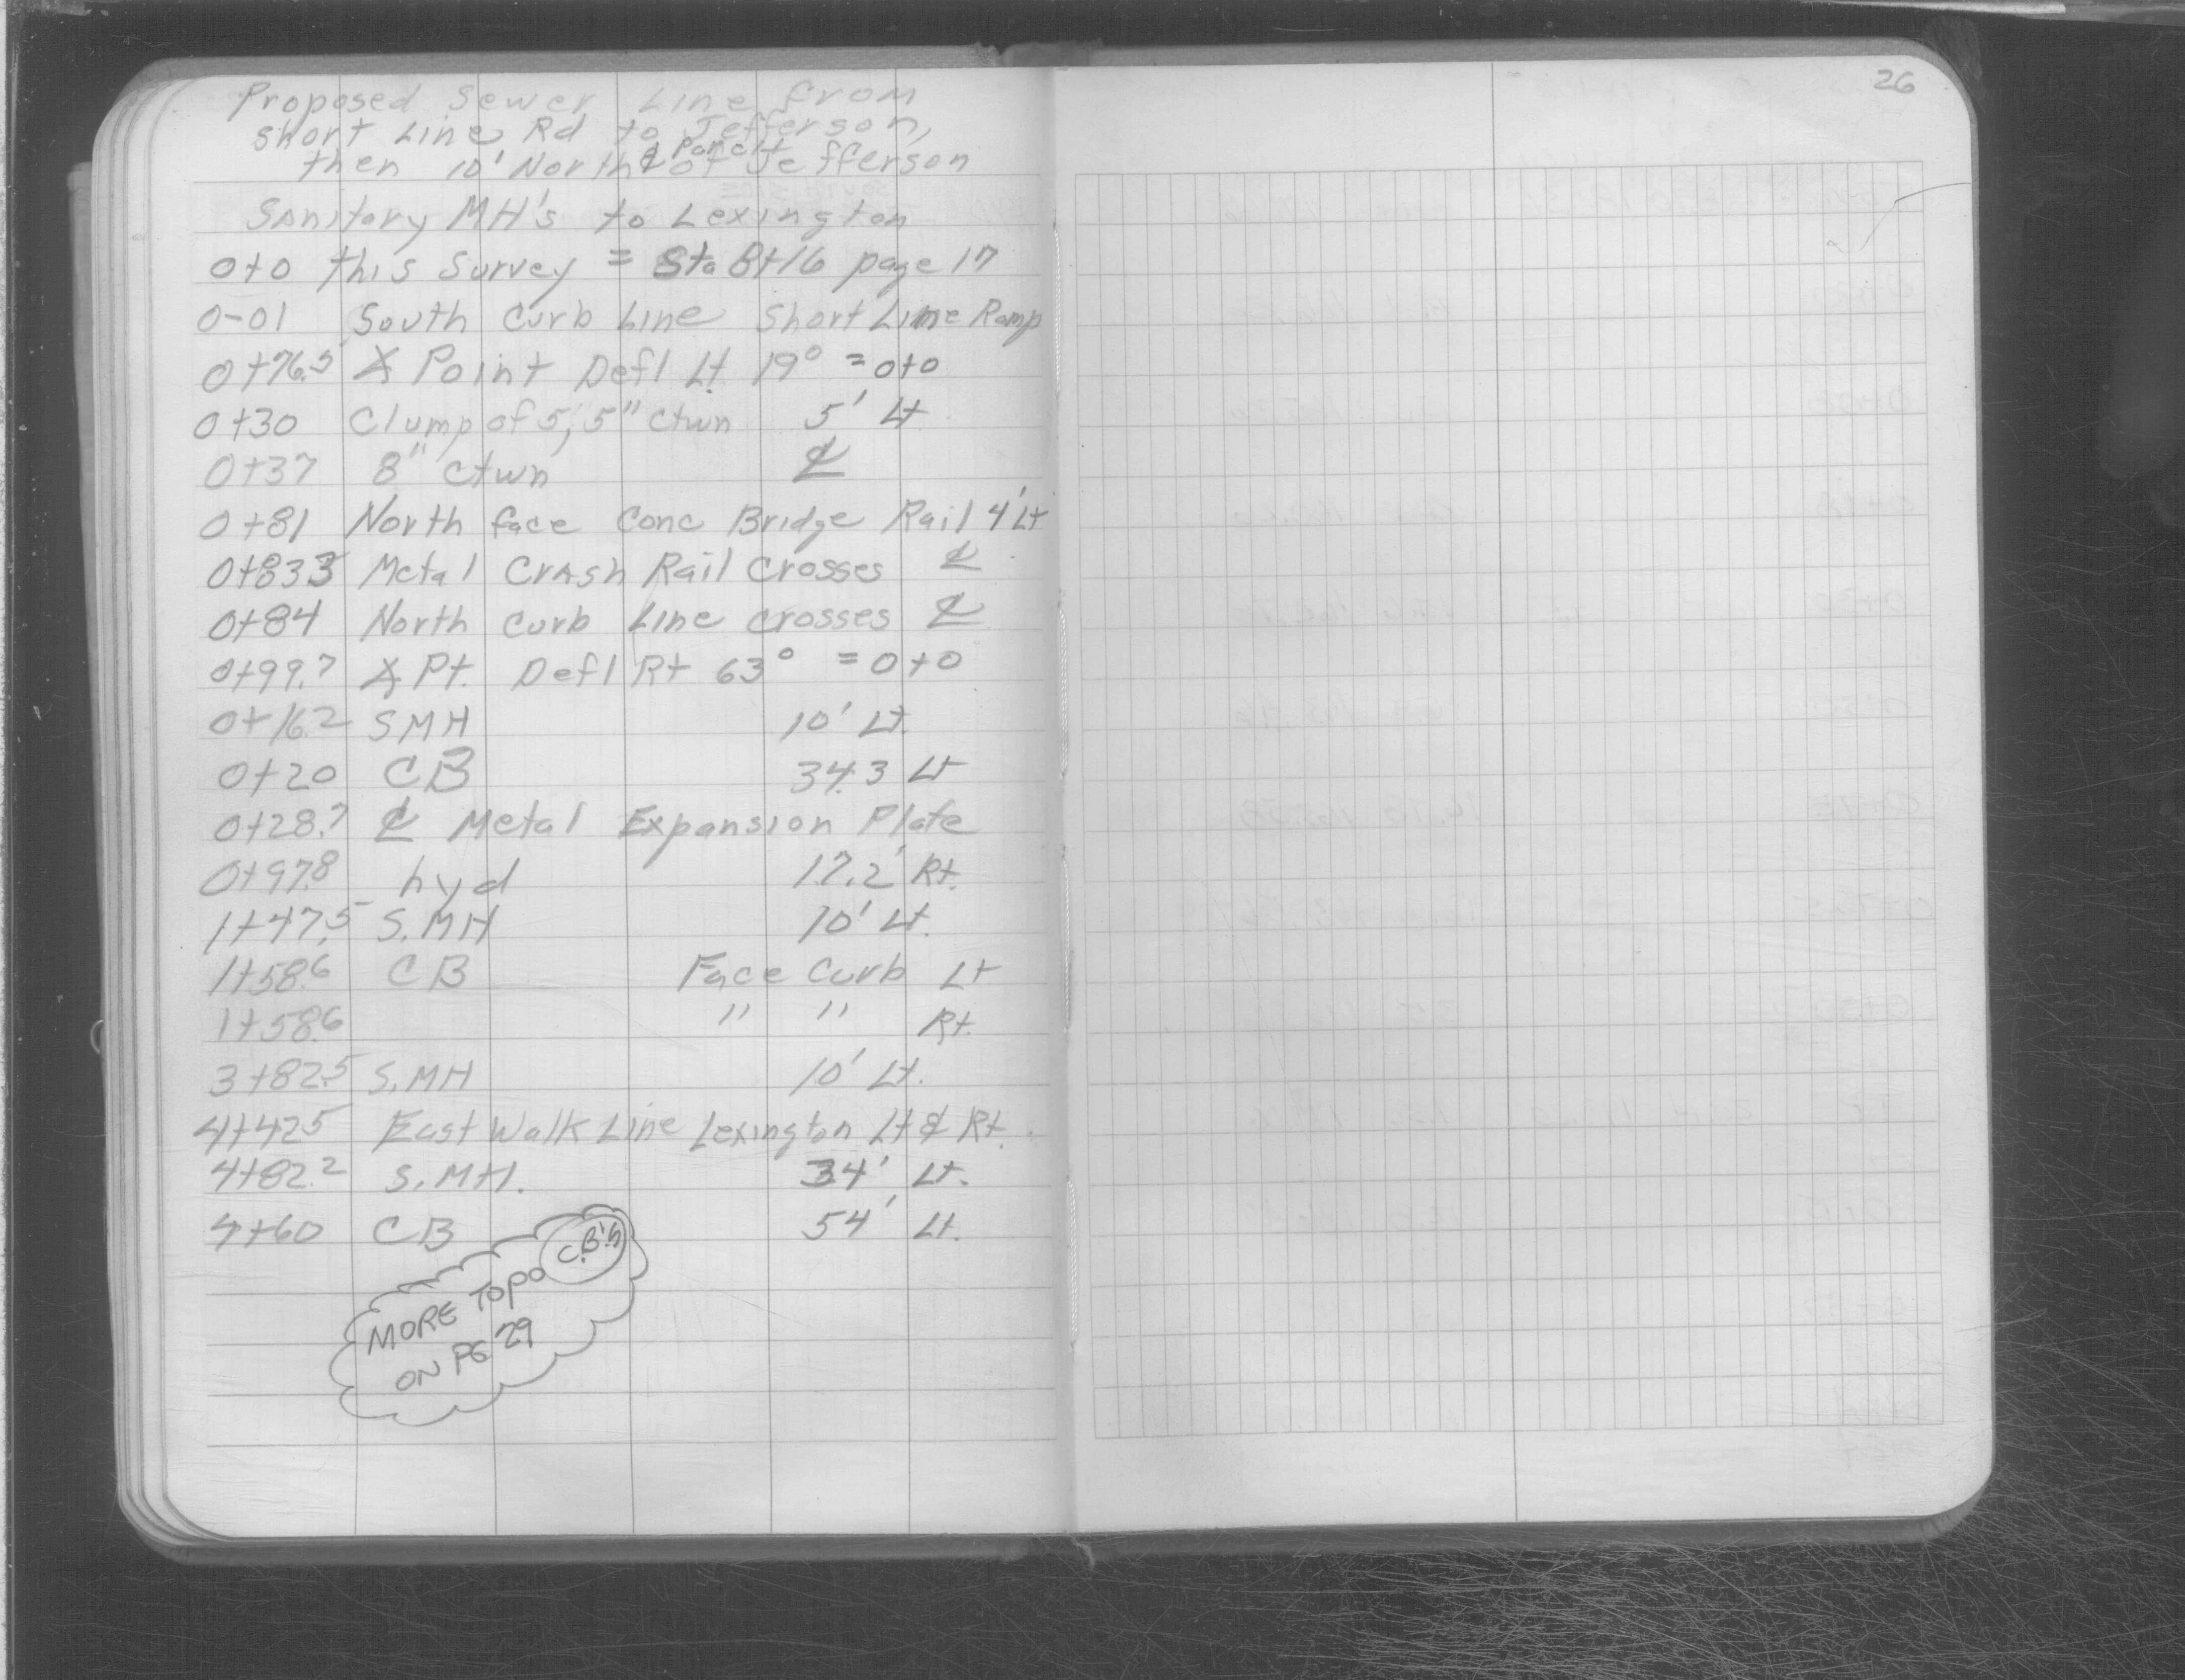 Proposed Sewer Line from
Short Line Rd to Jefferson,
then 10' North & Paralt of Jefferson
Sanitary MH's to Lexington
0+0 this Survey = Sta 8+16 page 17
0-01 South Curb Line Short Line Ramp
0+76.5 ∠ Point Defl Lt. 19° = 0+0
0+30 Clump of 5, 5" Ctwn 5' Lt
0+37 8" Ctwn ℄
0+81 North face Conc Bridge Rail 4' Lt
0+83.5 Metal Crash Rail Crosses ℄
0+84 North Curb Line Crosses ℄
0+99.7 ∠ Pt. Defl Rt 63° = 0+0
0+16.2 SMH 10' Lt.
0+20 CB 34.3 Lt
0+28.7 ℄ Metal Expansion Plate
0+97.8 hyd 17.2' Rt.
1+47.5 S.MH 10' Lt.
1+58.6 CB Face Curb Lt
1+58.6 " " Rt.
3+82.5 S.MH 10' Lt.
4+42.5 East Walk Line Lexington Lt & Rt.
4+82.2 S.MH. 34' Lt.
4+60 CB 54' Lt.
MORE TOPO C.B.'s
ON PG 29
26